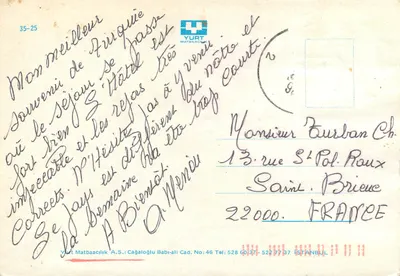 25-25
YURT
Mon meilleur
souvenir de Turquie
où le séjour se passe
fort bien. L'Hôtel est
impeccable et les repas très
corrects. N'hésitez pas à y venir
Le pays est différent du nôtre et
la semaine va être trop courte.
A Bientôt.
Monsieur Turban Ch.
13 rue St Pol Roux
Saint. Brieuc
22000. FRANCE
Yurt Matbaacılık A.Ş.: Cağaloğlu Babı-ali Cad. No: 46 Tel: